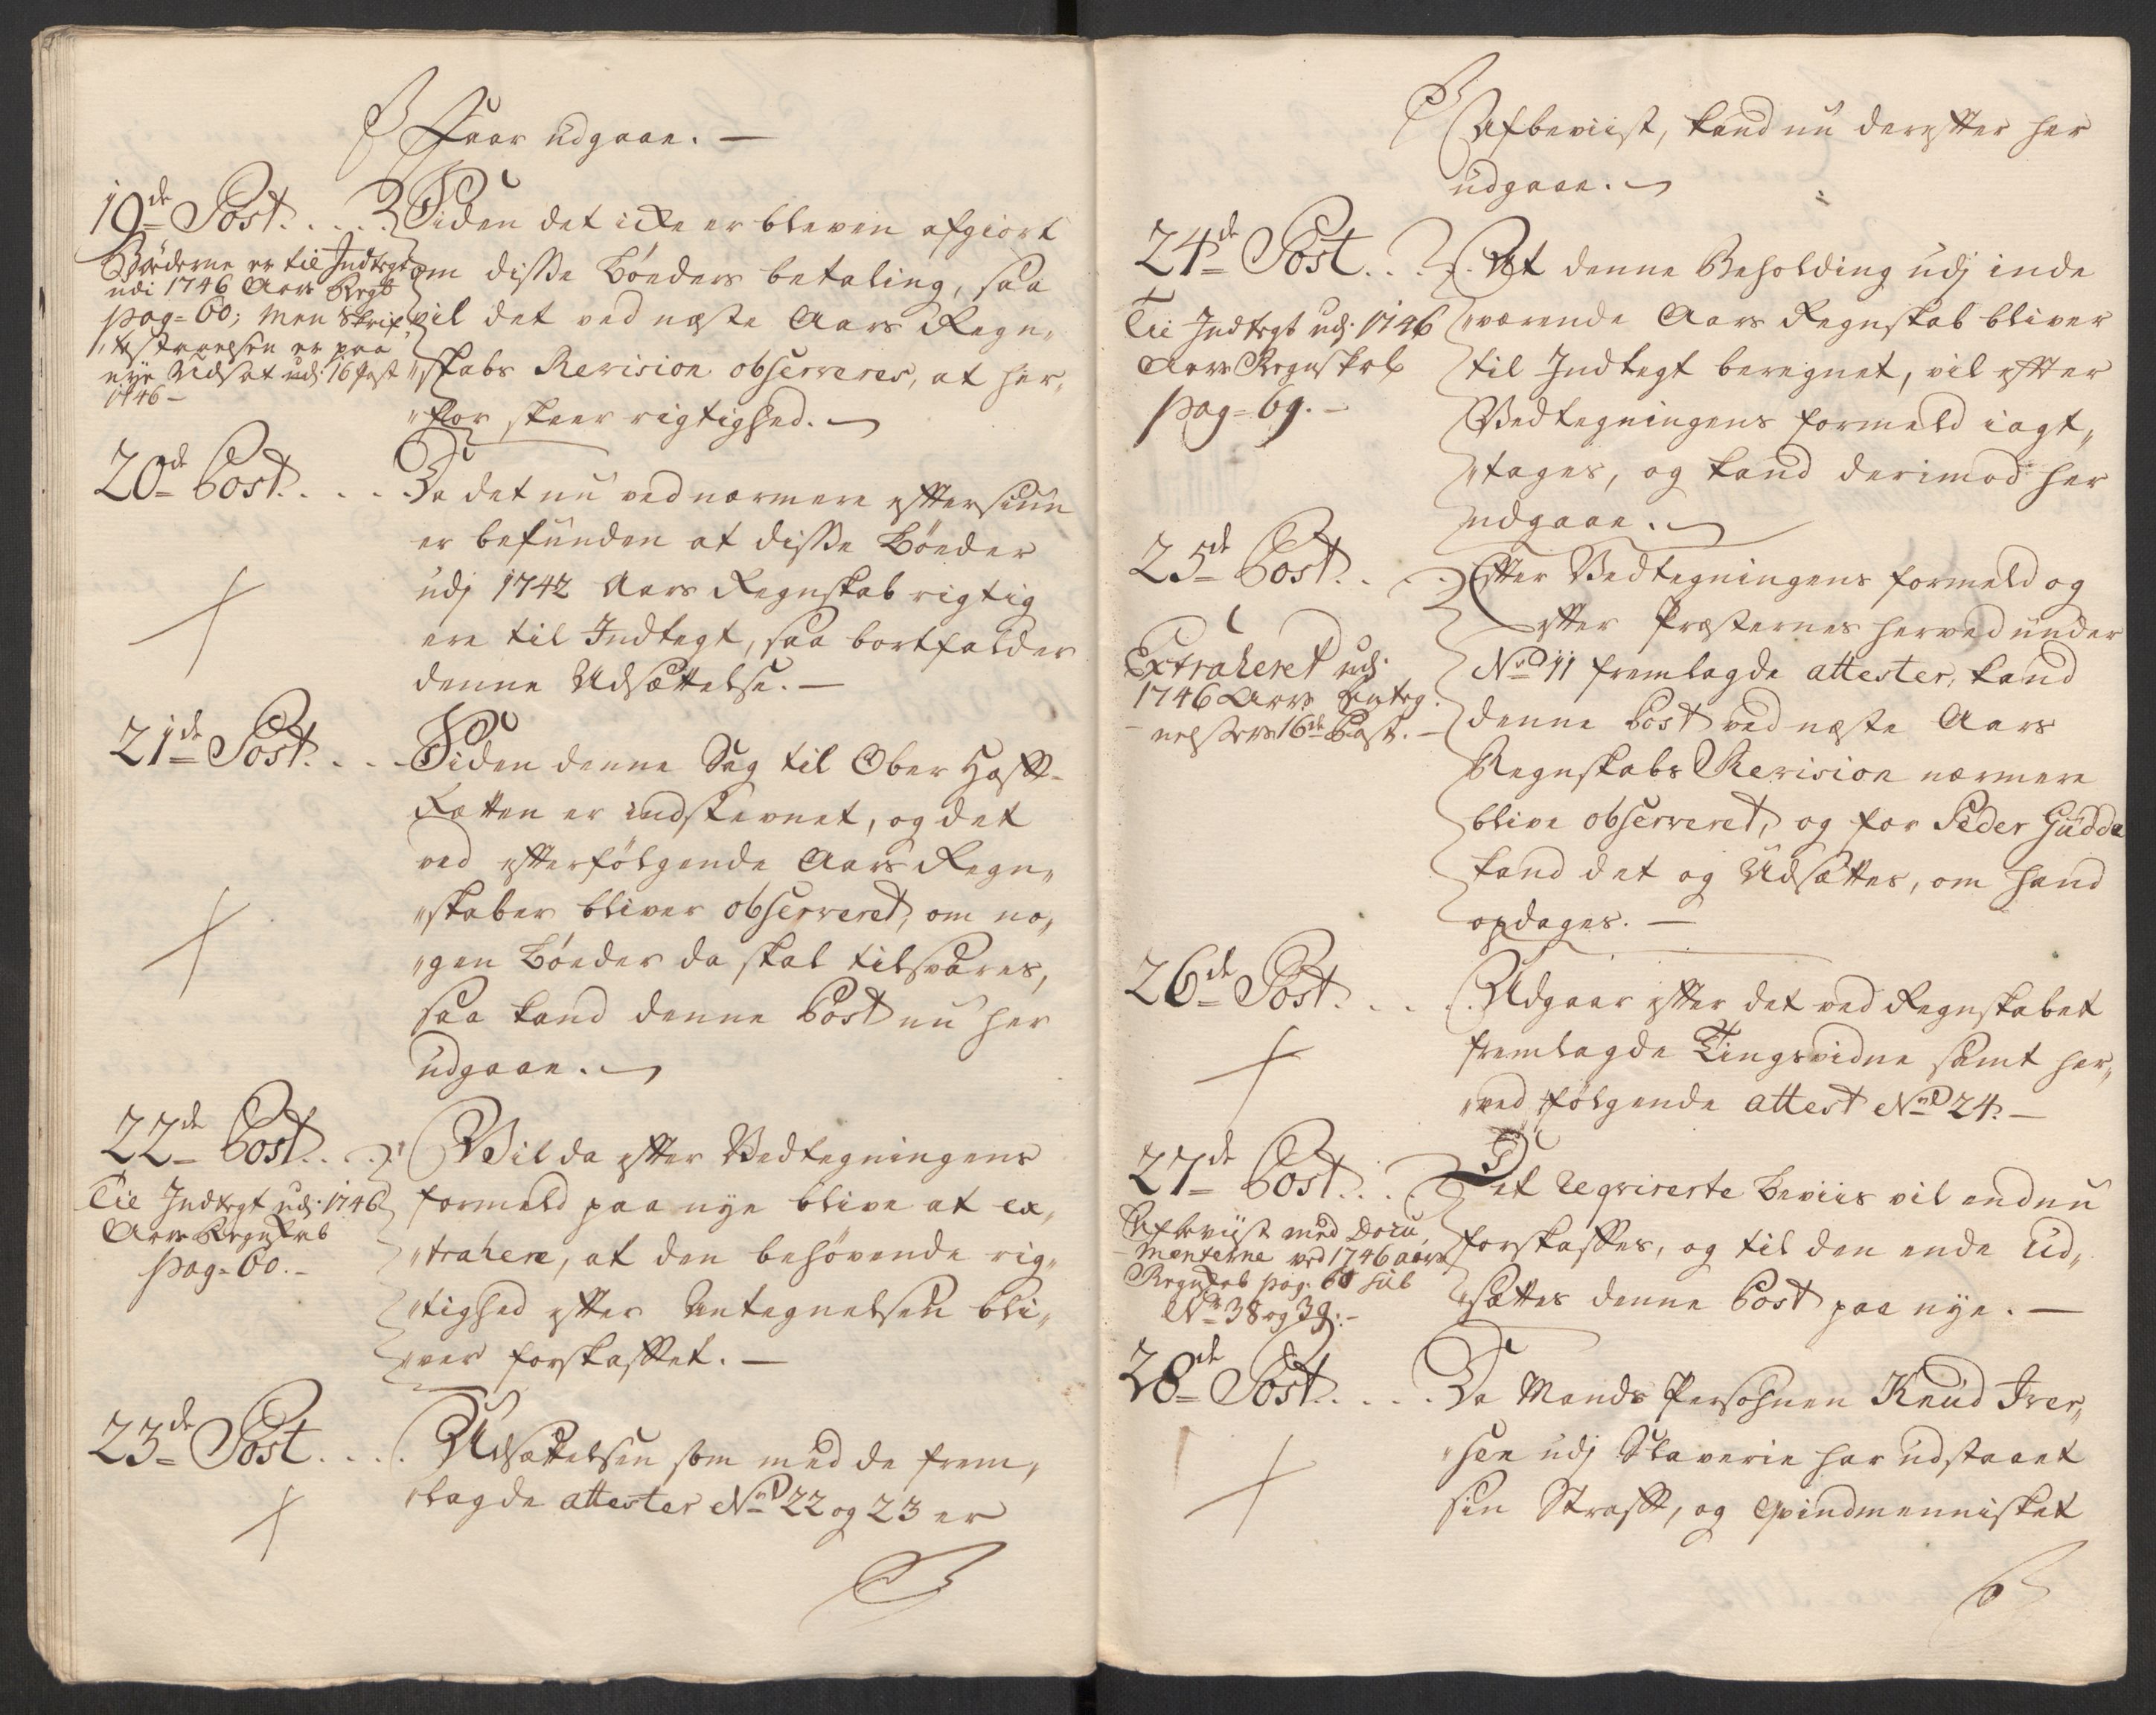 Faar udgaae. —
19de Post. . . . Siden det icke er bleven afgiort
Bøderne er til Indtegt
udi 1746 Aars Regt
pag= 60; men Skrif-
er paa
nye Udsat udj 16 Post
1746 —
om disse Bøeders betaling, saa
vil det ved næste Aars Regn„
„skabs Revision observeres, at her„
„for skeer rigtighed. —
20de Post. . . . Da det nu ved nærmere efftersiun
er befunden at disse Bøeder
udj 1742 Aars Regnskab rigtig
ere til Indtegt, saa bortfalder
denne Udsættelse. —
21de Post. . . Siden denne Sag til Ober Hoff-
Retten er indstevnet, og det
ved efterfølgende Aars Regn„
„skaber bliver observeret, om no„
„gen Bøeder da skal tilsvares,
saa kand denne Post nu her
udgaae. —
22de Post. . . . Vil da efter Vedtegningens
Til Indtegt udj 1746
Aars Regnskab
pag= 60. —
formeld paa nye blive at ex„
„trahere, at den behøvende rig„
„tighed efter Antegnelsen bli„
„ver forskaffet. —
23de Post. . . . Udsættelsen som med de frem„
„lagde attester No 22 og 23 er
Afbeviist, kand nu derefter her
udgaae. —
24de Post. . . . At denne Beholding udj inde
Til Indtegt udj 1746
Aars Regnskab
pag= 69. —
„værende Aars Regnskab bliver
til Indtegt beregnet, vil efter
Vedtegningens formeld iagt„
„tages, og kand derimod her
udgaae. —
25de Post. . . . Efter Vedtegningens formeld og
Extraheret udj
1746 Aars Anteg-
nelsers 16de Post. —
efter Præsternes herved under
No 11 fremlagde attester, kand
denne Post ved næste Aars
Regnskabs Revision nærmere
blive observeret, og for Peder Gudde
kand det og Udsættes, om hand
opdages. —
26de Post. . . . Udgaar efter det ved Regnskabet
fremlagde Tingsvidne samt her„
„ved følgende attest No 24. —
27de Post. . . . Det reqvirerte Beviis vil endnu
Afbeviist med Docu„
menterne ved 1746 aars
Regnskab pag. 60 sub
No 38 og 39. —
forskaffes, og til den ende Ud„
„sættes denne Post paa nye. —
28de Post. . . . Da Mands Persohnen Knud Iver„
„sen udj Slaverie har udstaaet
sin Straff, og Qvindmennisket